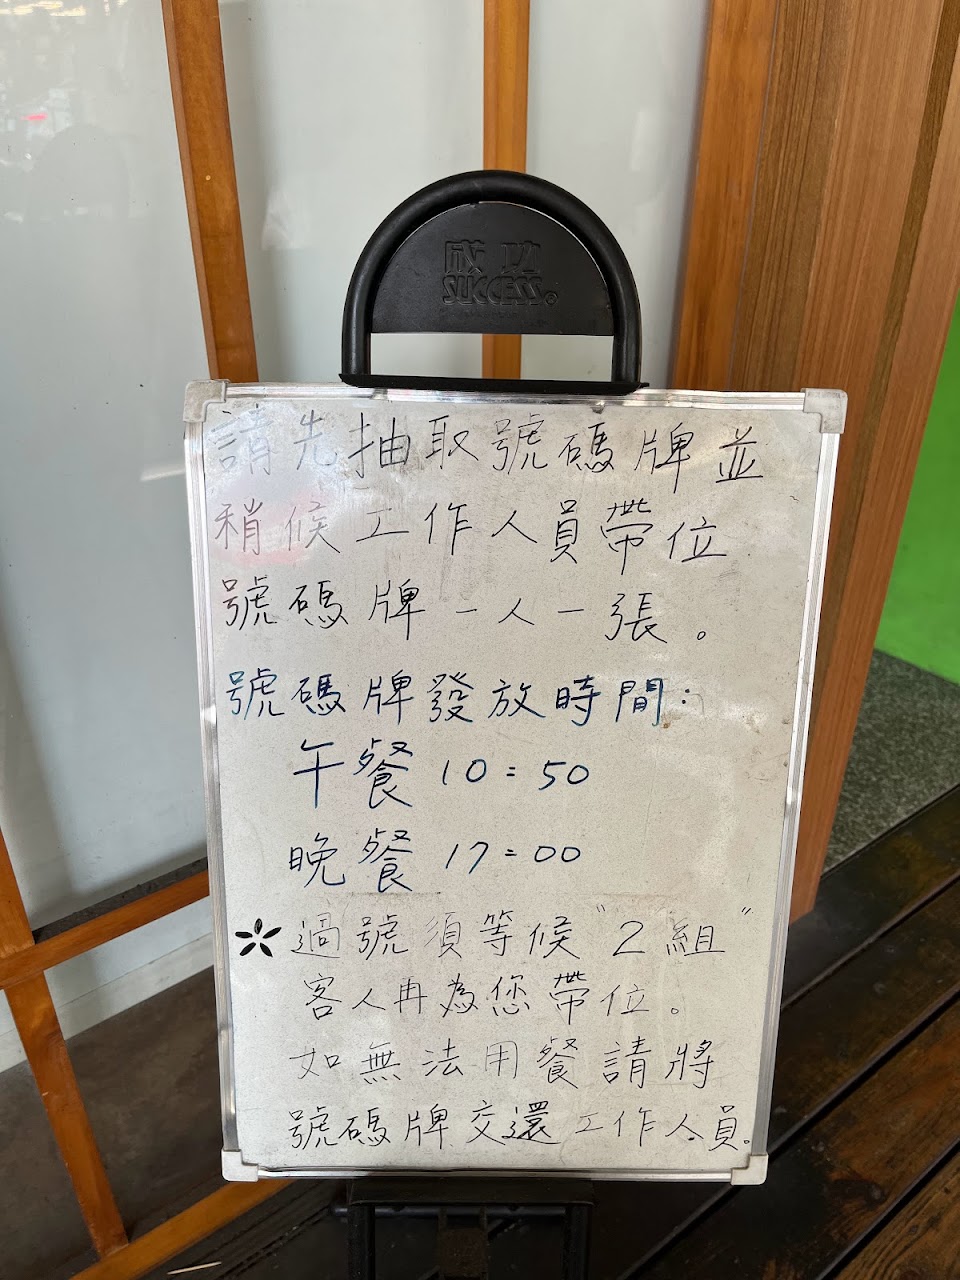 成功
SUCCESS®
請先抽取號碼牌並
稍候工作人員帶位
號碼牌一人一張。
號碼牌發放時間:
午餐 10:50
晚餐 17:00
* 過號須等候"2組"
客人再為您帶位。
如無法用餐請將
號碼牌交還工作人員。